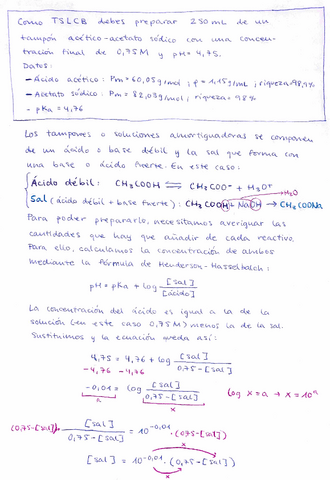 Como TSLCB debes preparar 250 mL de un
tampón acético-acetato sódico con una concen-
tración final de 0,75M y pH = 4,75.
Datos:
- Ácido acético: Pm = 60,05 g/mol ; ρ = 1,15 g/mL ; riqueza: 98,9%
- Acetato sódico: Pm = 82,03 g/mol ; riqueza = 98%
- pKa = 4,76
Los tampones o soluciones amortiguadoras se componen
de un ácido o base débil y la sal que forma con
una base o ácido fuerte. En este caso:
Ácido débil: CH₃COOH ⇌ CH₃COO⁻ + H₃O⁺
H₂O
Sal (ácido débil + base fuerte): CH₃COOH + NaOH → CH₃COONa
Para poder prepararlo, necesitamos averiguar las
cantidades que hay que añadir de cada reactivo.
Para ello, calculamos la concentración de ambos
mediante la fórmula de Henderson-Hasselbalch:
pH = pKa + log [sal]/[ácido]
La concentración del ácido es igual a la de la
solución (en este caso 0,75M) menos la de la sal.
Sustituimos y la ecuación queda así:
4,75 = 4,76 + log [sal]/0,75-[sal]
-4,76 -4,76
-0,01 = log [sal]/0,75-[sal] log x = a → x = 10ᵃ
a x
(0,75-[sal])· [sal]/0,75-[sal] = 10⁻⁰,⁰¹ ·(0,75-[sal])
x
[sal] = 10⁻⁰,⁰¹ · (0,75-[sal])
x